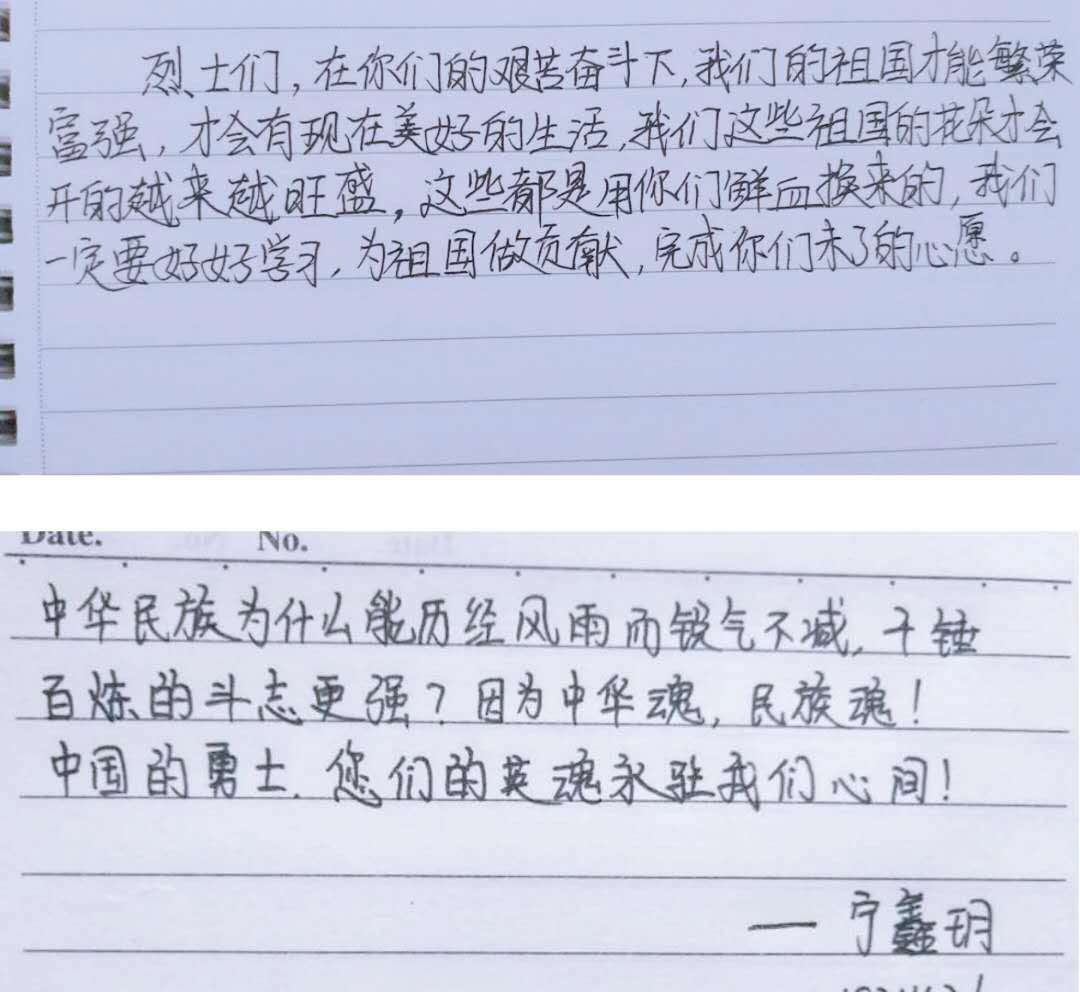 烈士们，在你们的艰苦奋斗下，我们的祖国才能繁荣
富强，才会有现在美好的生活，我们这些祖国的花朵才会
开的越来越旺盛，这些都是用你们鲜血换来的，我们
一定要好好学习，为祖国做贡献，完成你们未了的心愿。
Date. No.
中华民族为什么能历经风雨而锐气不减，千锤
百炼的斗志更强？因为中华魂，民族魂！
中国的勇士．您们的英魂永驻我们心间！
— 宁鑫玥